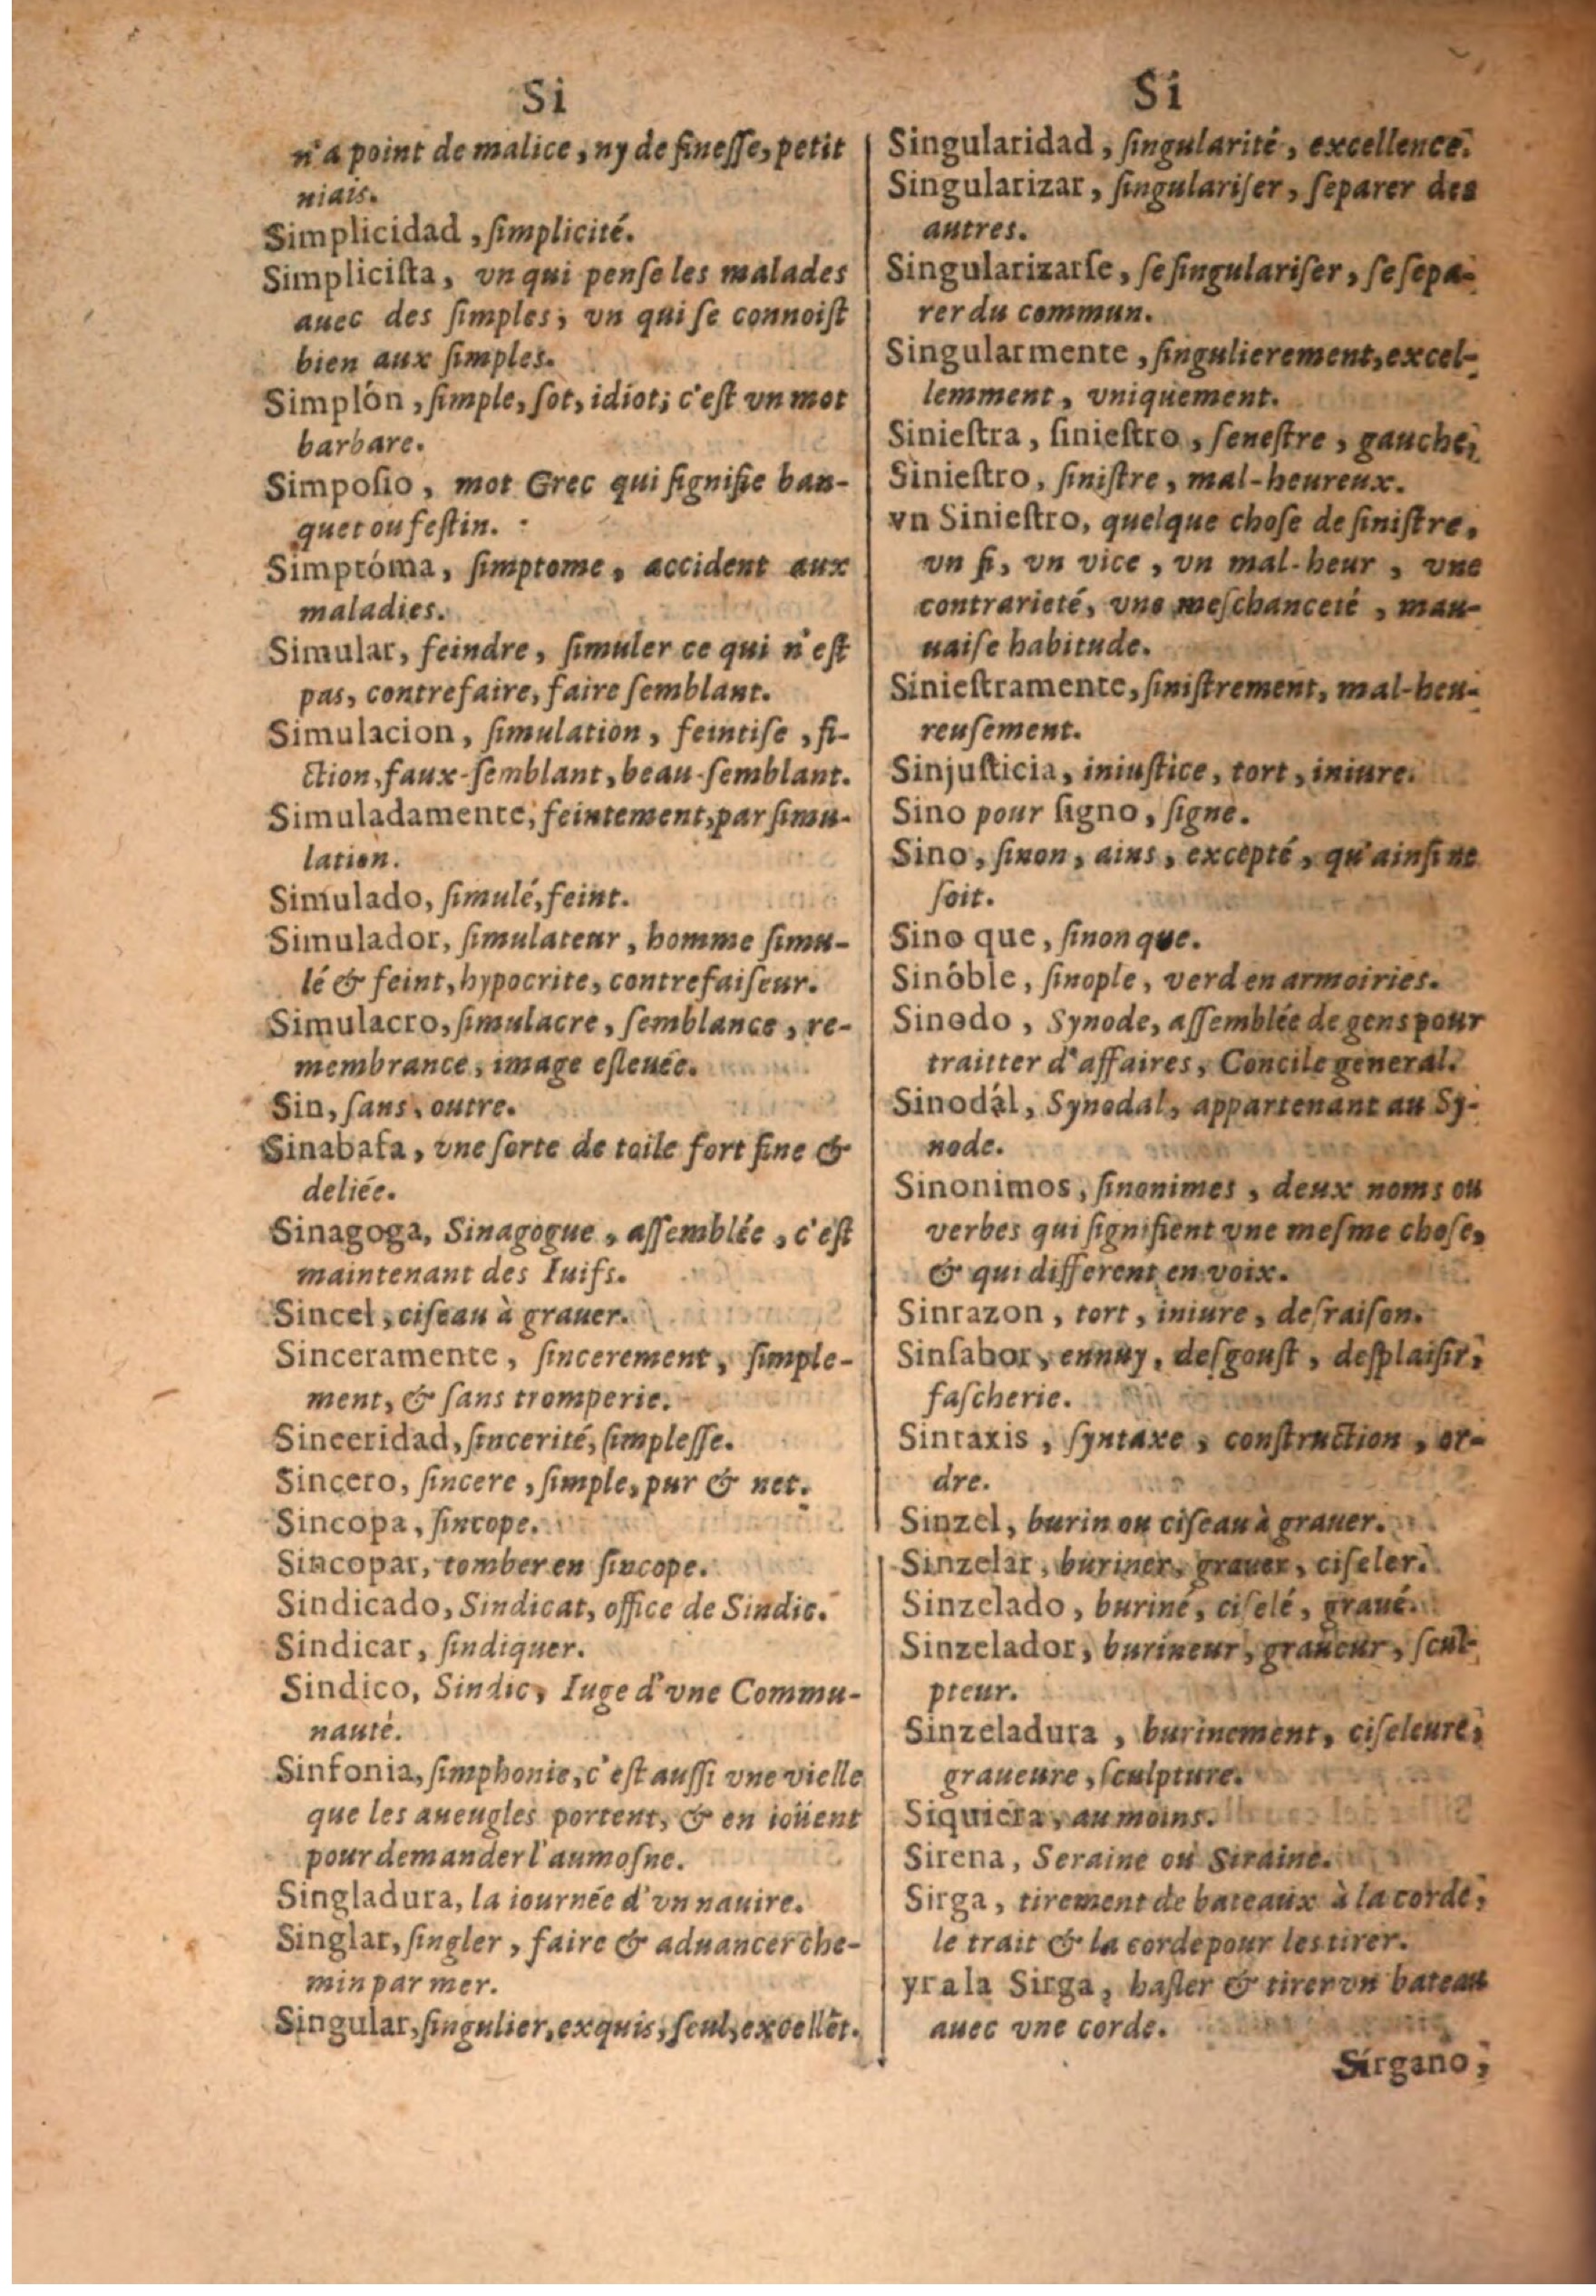 Si
n'a point de malice, ny de fineſſe, petit
niais.
Simplicidad, ſimplicité.
Simpliciſta, vn qui penſe les malades
auec des ſimples; vn qui ſe connoiſt
bien aux ſimples.
Simplón, ſimple, ſot, idiot; c'eſt vn mot
barbare.
Simpoſio, mot Grec qui ſignifie ban-
quet ou feſtin.
Simptóma, ſimptome, accident aux
maladies.
Simular, feindre, ſimuler ce qui n'eſt
pas, contrefaire, faire ſemblant.
Simulacion, ſimulation, feintiſe, fi-
ction, faux-ſemblant, beau-ſemblant.
Simuladamente, feintement, par ſimu-
lation.
Simulado, ſimulé, feint.
Simulador, ſimulateur, homme ſimu-
lé & feint, hypocrite, contrefaiſeur.
Simulacro, ſimulacre, ſemblance, re-
membrance, image eſleuée.
Sin, ſans, outre.
Sinabafa, vne ſorte de toile fort fine &
deliée.
Sinagoga, Sinagogue, aſſemblée, c'eſt
maintenant des Iuifs.
Sincel, ciſeau à grauer.
Sinceramente, ſincerement, ſimple-
ment, & ſans tromperie.
Sinceridad, ſincerité, ſimpleſſe.
Sincero, ſincere, ſimple, pur & net.
Sincopa, ſincope.
Sincopar, tomber en ſincope.
Sindicado, Sindicat, office de Sindic.
Sindicar, ſindiquer.
Sindico, Sindic, Iuge d'vne Commu-
nauté.
Sinfonia, ſimphonie, c'eſt auſſi vne vielle
que les aueugles portent, & en ioüent
pour demander l'aumoſne.
Singladura, la iournée d'vn nauire.
Singlar, ſingler, faire & aduancer che-
min par mer.
Singular, ſingulier, exquis, ſeul, excellẽt.
Si
Singularidad, ſingularité, excellence.
Singularizar, ſingulariſer, ſeparer des
autres.
Singularizarſe, ſe ſingulariſer, ſe ſepa-
rer du commun.
Singularmente, ſingulierement, excel-
lemment, vniquement.
Sinieſtra, ſinieſtro, ſeneſtre, gauche,
Sinieſtro, ſiniſtre, mal-heureux.
vn Sinieſtro, quelque choſe de ſiniſtre,
vn ſi, vn vice, vn mal-heur, vne
contrarieté, vne meſchanceté, mau-
uaiſe habitude.
Sinieſtramente, ſiniſtrement, mal-heu-
reuſement.
Sinjuſticia, iniuſtice, tort, iniure.
Sino pour ſigno, ſigne.
Sino, ſinon, ains, excepté, qu'ainſi ne
ſoit.
Sino que, ſinon que.
Sinóble, ſinople, verd en armoiries.
Sinodo, Synode, aſſemblée de gens pour
traitter d'affaires, Concile general.
Sinodál, Synodal, appartenant au Sy-
node.
Sinonimos, ſinonimes, deux noms ou
verbes qui ſignifient vne meſme choſe,
& qui different en voix.
Sinrazon, tort, iniure, deſraiſon.
Sinſabor, ennuy, deſgouſt, deſplaiſir,
faſcherie.
Sintaxis, ſyntaxe, conſtruction, or-
dre.
Sinzel, burin ou ciſeau à grauer.
Sinzelar, buriner, grauer, ciſeler.
Sinzelado, buriné, ciſelé, graué.
Sinzelador, burineur, graueur, ſcul-
pteur.
Sinzeladura, burinement, ciſeleure,
graueure, ſculpture.
Siquiera, au moins.
Sirena, Seraine ou Siraine.
Sirga, tirement de bateaux à la corde,
le trait & la corde pour les tirer.
yr a la Sirga, haſler & tirer vn bateau
auec vne corde.
Sirgano,